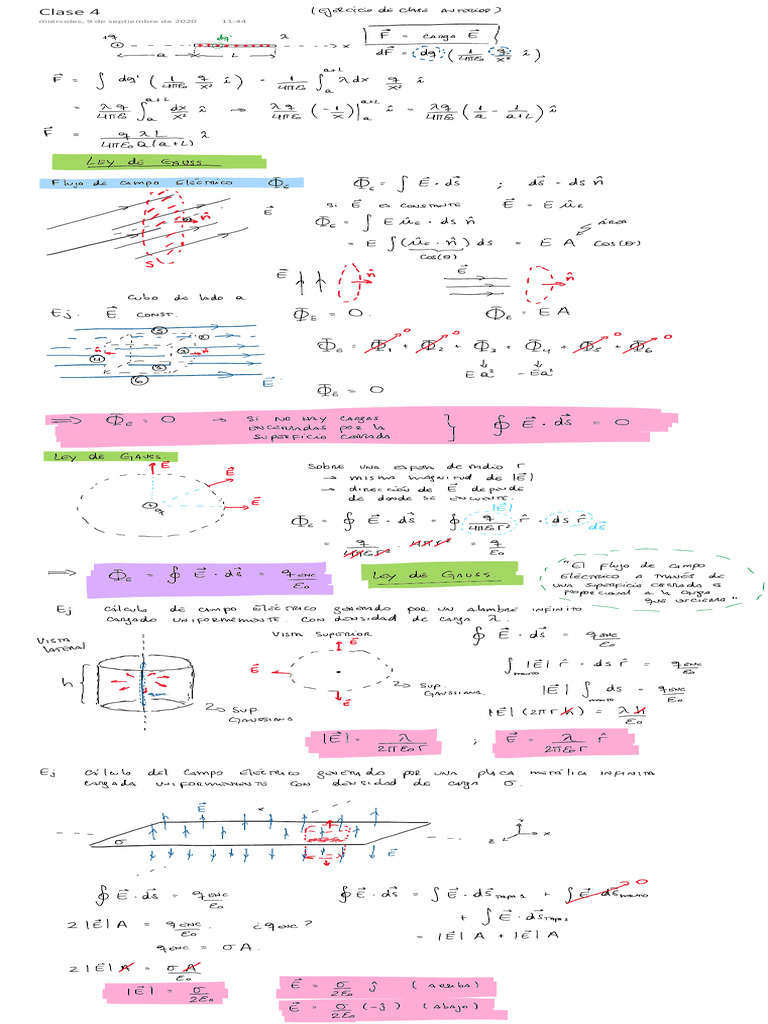 Clase 4
miércoles, 9 de septiembre de 2020 11:44
(EJERCICIO DE CLASE ANTERIOR)
+q dq' λ x
a L
F⃗ = CARGA E⃗
dF⃗ = dq' (1/4πε₀ q/x² î)
F⃗ = ∫ dq' (1/4πε₀ q/x² î) = 1/4πε₀ ∫ₐᵃ⁺ᴸ λdx q/x² î
= λq/4πε₀ ∫ₐᵃ⁺ᴸ dx/x² î → λq/4πε₀ (-1/x)|ₐᵃ⁺ᴸ î = λq/4πε₀ (1/a - 1/(a+L)) î
F⃗ = qλL/4πε₀a(a+L) î
LEY DE GAUSS
FLUJO DE CAMPO ELÉCTRICO Φ_E
Φ_E = ∫ E⃗ · ds⃗ ; ds⃗ = ds n̂
SI E⃗ ES CONSTANTE E⃗ = E û_E
Φ_E = ∫ E û_E · ds n̂
ÁREA
= E ∫(û_E · n̂) ds = E A cos(θ)
cos(θ)
E⃗ n̂ S
E⃗ n̂
E⃗ n̂
Φ_E = 0. Φ_E = EA
CUBO DE LADO a
Ej. E⃗ CONST.
Φ_E = Φ₁ + Φ₂ + Φ₃ + Φ₄ + Φ₅ + Φ₆
0 0 0 0
Ea² -Ea²
Φ_E = 0
⇒ Φ_E = 0 → SI NO HAY CARGAS
ENCERRADAS POR LA
SUPERFICIE CERRADA.
∮ E⃗ · ds⃗ = 0
LEY DE GAUSS.
E⃗ E⃗ E⃗
SOBRE UNA ESFERA DE RADIO r
→ MISMA MAGNITUD DE |E⃗|
→ DIRECCIÓN DE E⃗ DEPENDE
DE DONDE SE ENCUENTRE.
|E⃗|
Φ_E = ∮ E⃗ · ds⃗ = ∮ q/4πε₀r² r̂ · ds r̂
ds⃗
= q/4πε₀r² · 4πr² = q/ε₀
⇒ Φ_E = ∮ E⃗ · ds⃗ = q_ENC/ε₀
LEY DE GAUSS
"EL FLUJO DE CAMPO
ELÉCTRICO A TRAVÉS DE
UNA SUPERFICIE CERRADA ES
PROPORCIONAL A LA CARGA
QUE ENCIERRA"
Ej CÁLCULO DE CAMPO ELÉCTRICO GENERADO POR UN ALAMBRE INFINITO
CARGADO UNIFORMEMENTE. CON DENSIDAD DE CARGA λ.
VISTA LATERAL
VISTA SUPERIOR
h
SUP. GAUSSIANA
E⃗ E⃗ E⃗
SUP GAUSSIANA.
∮ E⃗ · ds⃗ = q_ENC/ε₀
∫_MANTO |E⃗| r̂ · ds r̂ = q_ENC/ε₀
|E⃗| ∫_MANTO ds = q_ENC/ε₀
|E⃗| (2πr h) = λh/ε₀
|E⃗| = λ/2πε₀r ; E⃗ = λ/2πε₀r r̂
Ej CÁLCULO DEL CAMPO ELÉCTRICO GENERADO POR UNA PLACA METÁLICA INFINITA
CARGADA UNIFORMEMENTE CON DENSIDAD DE CARGA σ.
E⃗ x
σ
E⃗
y x z
∮ E⃗ · ds⃗ = q_ENC/ε₀
∮ E⃗ · ds⃗ = ∫ E⃗ · ds⃗_TAPA1 + ∫ E⃗ · ds⃗_MANTO 0
+ ∫ E⃗ · ds⃗_TAPA2
2|E⃗|A = q_ENC/ε₀ ¿q_ENC?
= |E⃗|A + |E⃗|A
q_ENC = σA.
2|E⃗|A = σA/ε₀
|E⃗| = σ/2ε₀
E⃗ = σ/2ε₀ ĵ (ARRIBA)
E⃗ = σ/2ε₀ (-ĵ) (ABAJO)